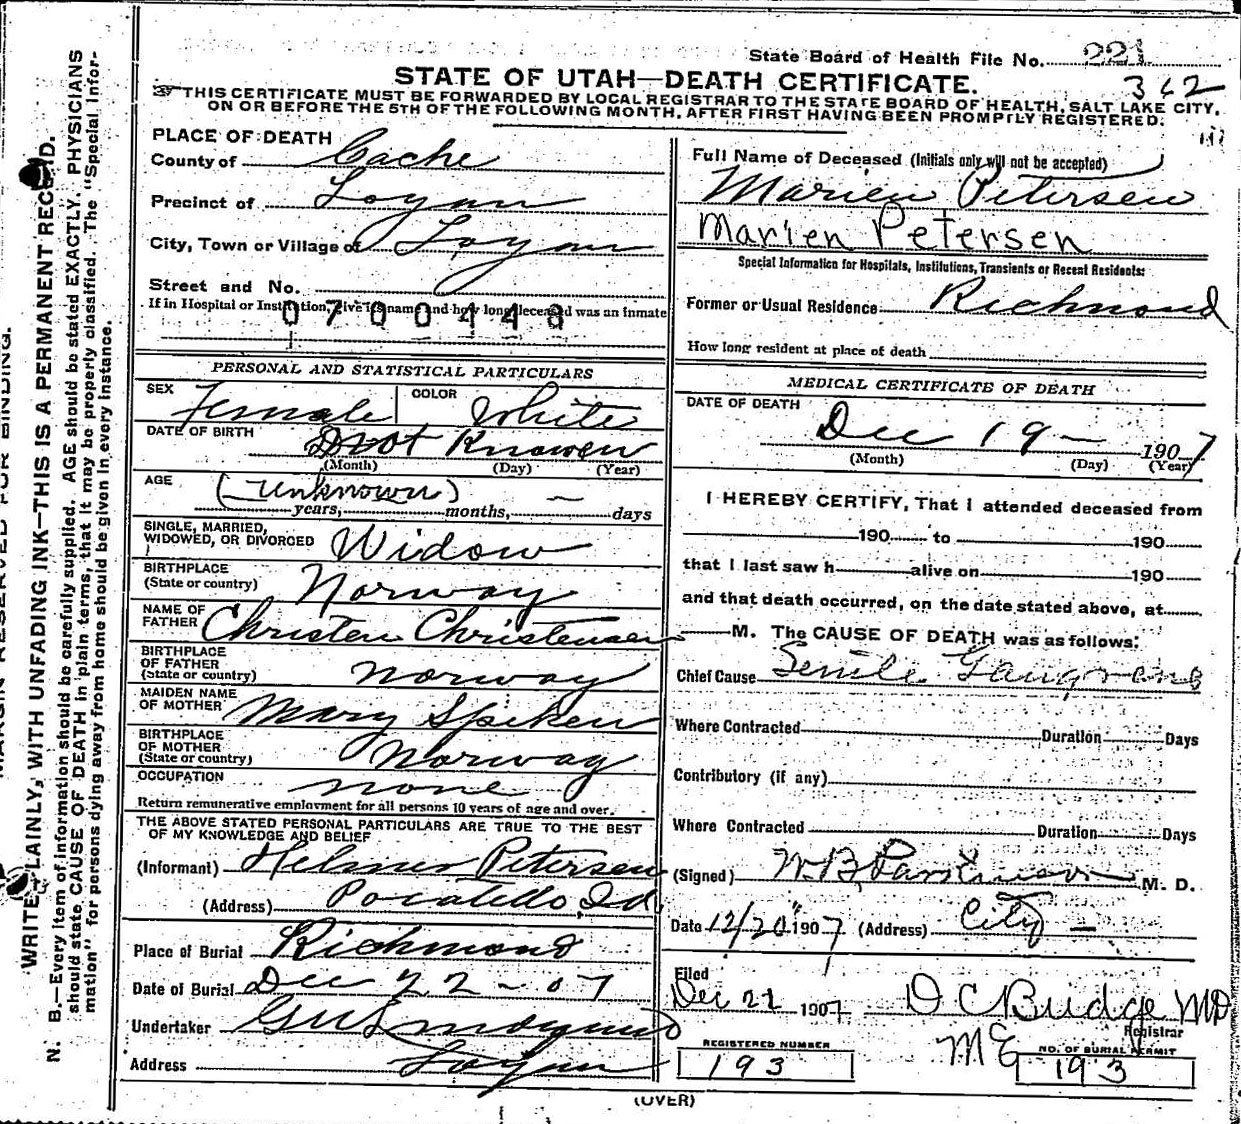 State Board of Health File No. 221
STATE OF UTAH—DEATH CERTIFICATE.
362
THIS CERTIFICATE MUST BE FORWARDED BY LOCAL REGISTRAR TO THE STATE BOARD OF HEALTH, SALT LAKE CITY,
ON OR BEFORE THE 5TH OF THE FOLLOWING MONTH, AFTER FIRST HAVING BEEN PROMPTLY REGISTERED.
PLACE OF DEATH
County of Cache
Precinct of Logan
City, Town or Village of Logan
Street and No.
If in Hospital or Institution, give its name and how long deceased was an inmate
0700448
PERSONAL AND STATISTICAL PARTICULARS
SEX Female COLOR White
DATE OF BIRTH Not Knowen
(Month) (Day) (Year)
AGE (Unknown) —
years, months, days
SINGLE, MARRIED,
WIDOWED, OR DIVORCED Widow
BIRTHPLACE
(State or country) Norway
NAME OF
FATHER Christen Christensen
BIRTHPLACE
OF FATHER
(State or country) Norway
MAIDEN NAME
OF MOTHER Mary Spiken
BIRTHPLACE
OF MOTHER
(State or country) Norway
OCCUPATION none
Return remunerative employment for all persons 10 years of age and over.
THE ABOVE STATED PERSONAL PARTICULARS ARE TRUE TO THE BEST
OF MY KNOWLEDGE AND BELIEF
(Informant) Helmer Petersen
(Address) Pocatello, Id.
Place of Burial Richmond
Date of Burial Dec 22 - 07
Undertaker
Address Logan
Full Name of Deceased (Initials only will not be accepted)
Marien Petersen
Marien Petersen
Special Information for Hospitals, Institutions, Transients or Recent Residents:
Former or Usual Residence Richmond
How long resident at place of death
MEDICAL CERTIFICATE OF DEATH
DATE OF DEATH
Dec 19 — 1907
(Month) (Day) (Year)
I HEREBY CERTIFY, That I attended deceased from
190 to 190
that I last saw h alive on 190
and that death occurred, on the date stated above, at
M. The CAUSE OF DEATH was as follows:
Chief Cause Senile Gangrene
Where Contracted Duration Days
Contributory (if any)
Where Contracted Duration Days
(Signed) W. B. Parkinson M. D.
Date 12/20 1907 (Address) City —
Filed
Dec 21 1907 D C Budge MD
Registrar
ME
REGISTERED NUMBER
193
NO. OF BURIAL PERMIT
193
(OVER)
MARGIN RESERVED FOR BINDING.
WRITE PLAINLY, WITH UNFADING INK—THIS IS A PERMANENT RECORD.
N. B.—Every item of information should be carefully supplied. AGE should be stated EXACTLY. PHYSICIANS
should state CAUSE OF DEATH in plain terms, that it may be properly classified. The "Special Infor-
mation" for persons dying away from home should be given in every instance.